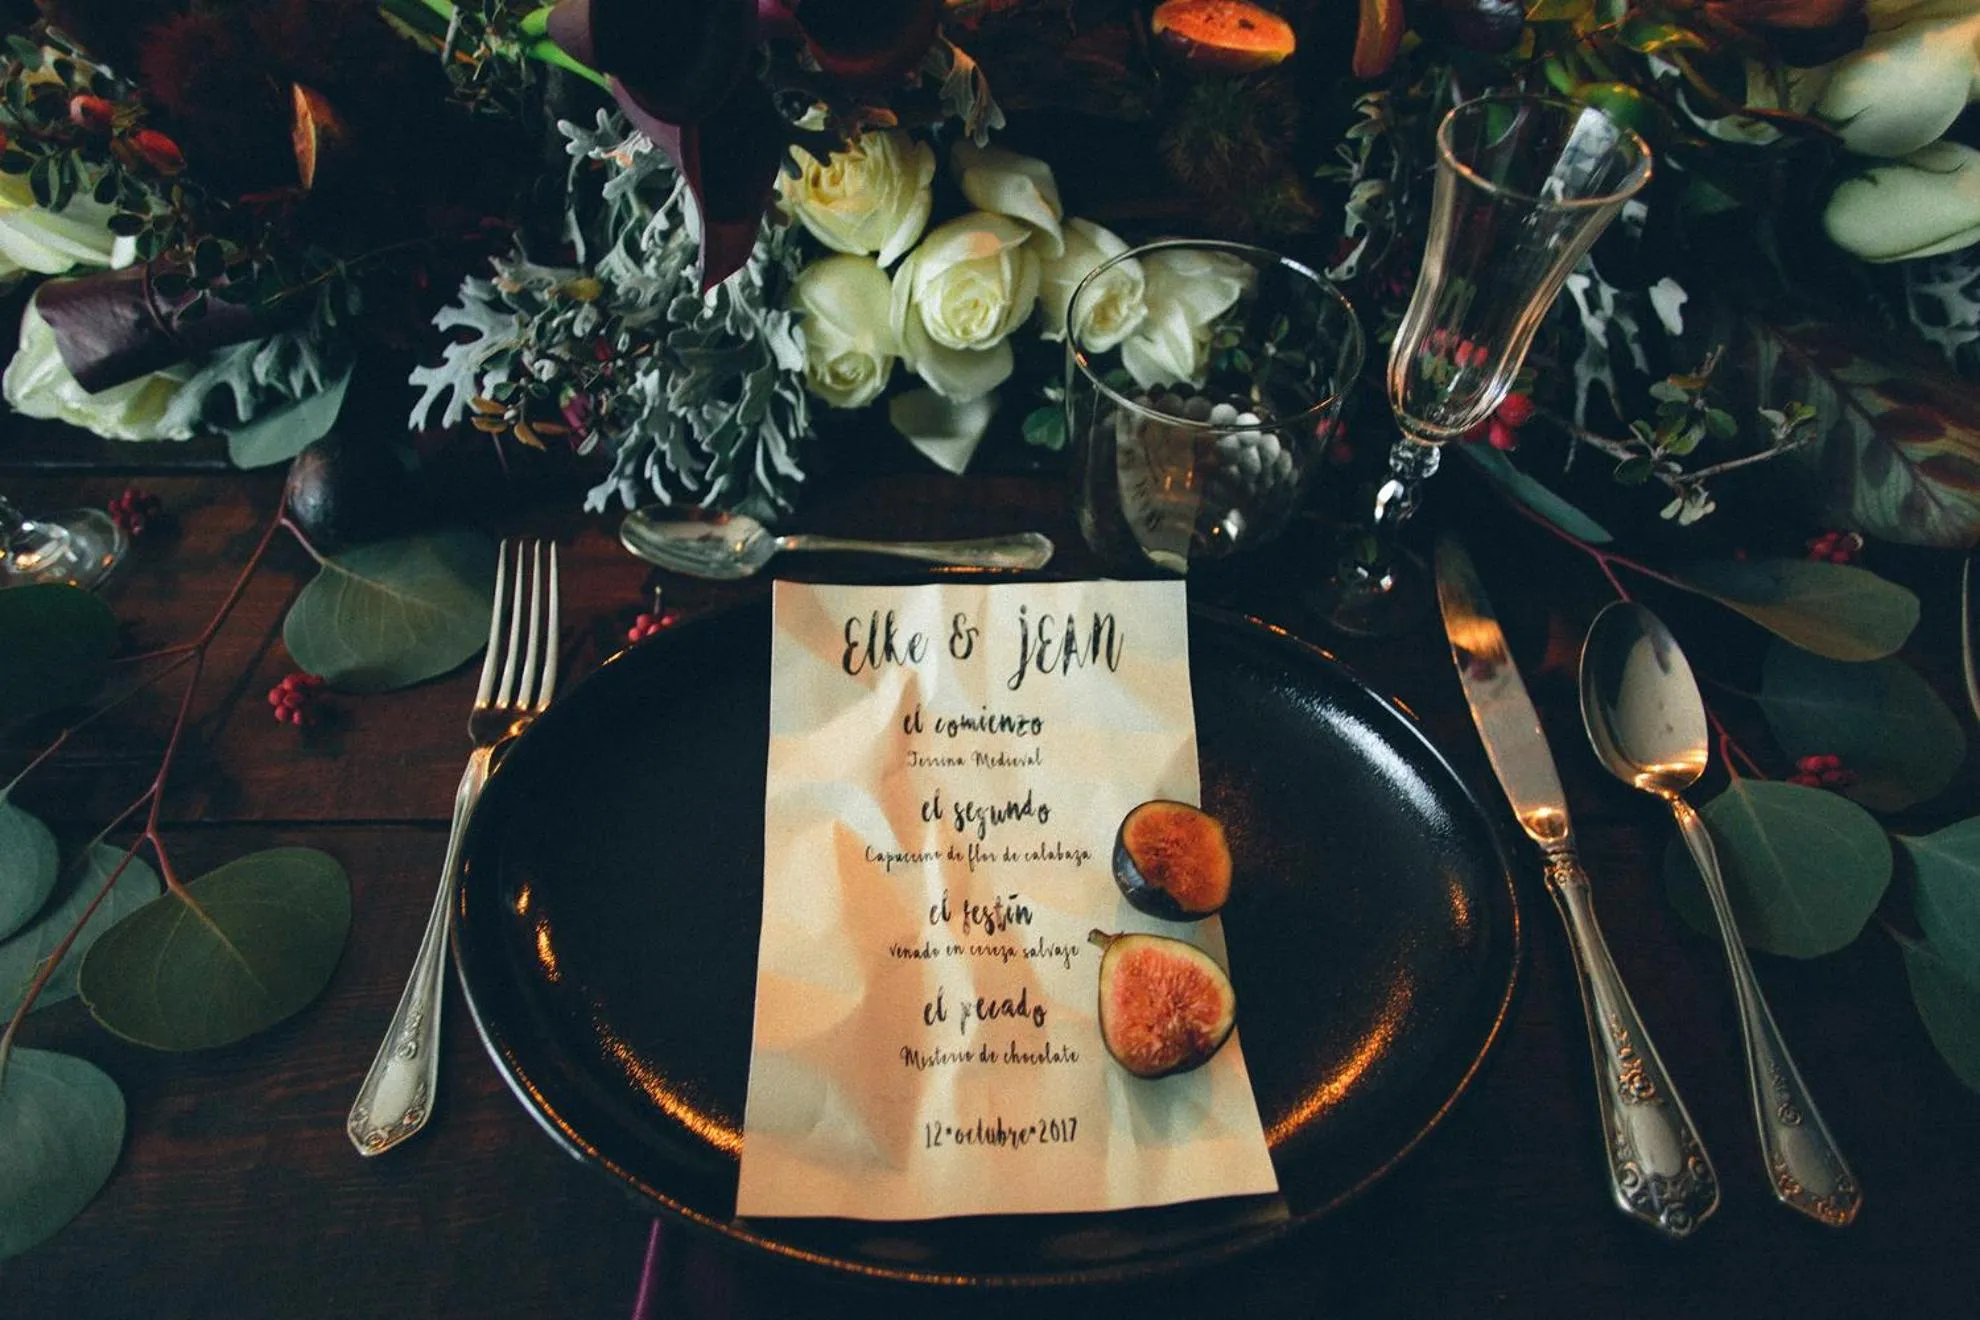 Elke & JEAN
el comienzo
Terrina Medieval
el segundo
Capuccino de flor de calabaza
el festín
venado en cereza salvaje
el pecado
Misterio de chocolate
12•octubre•2017